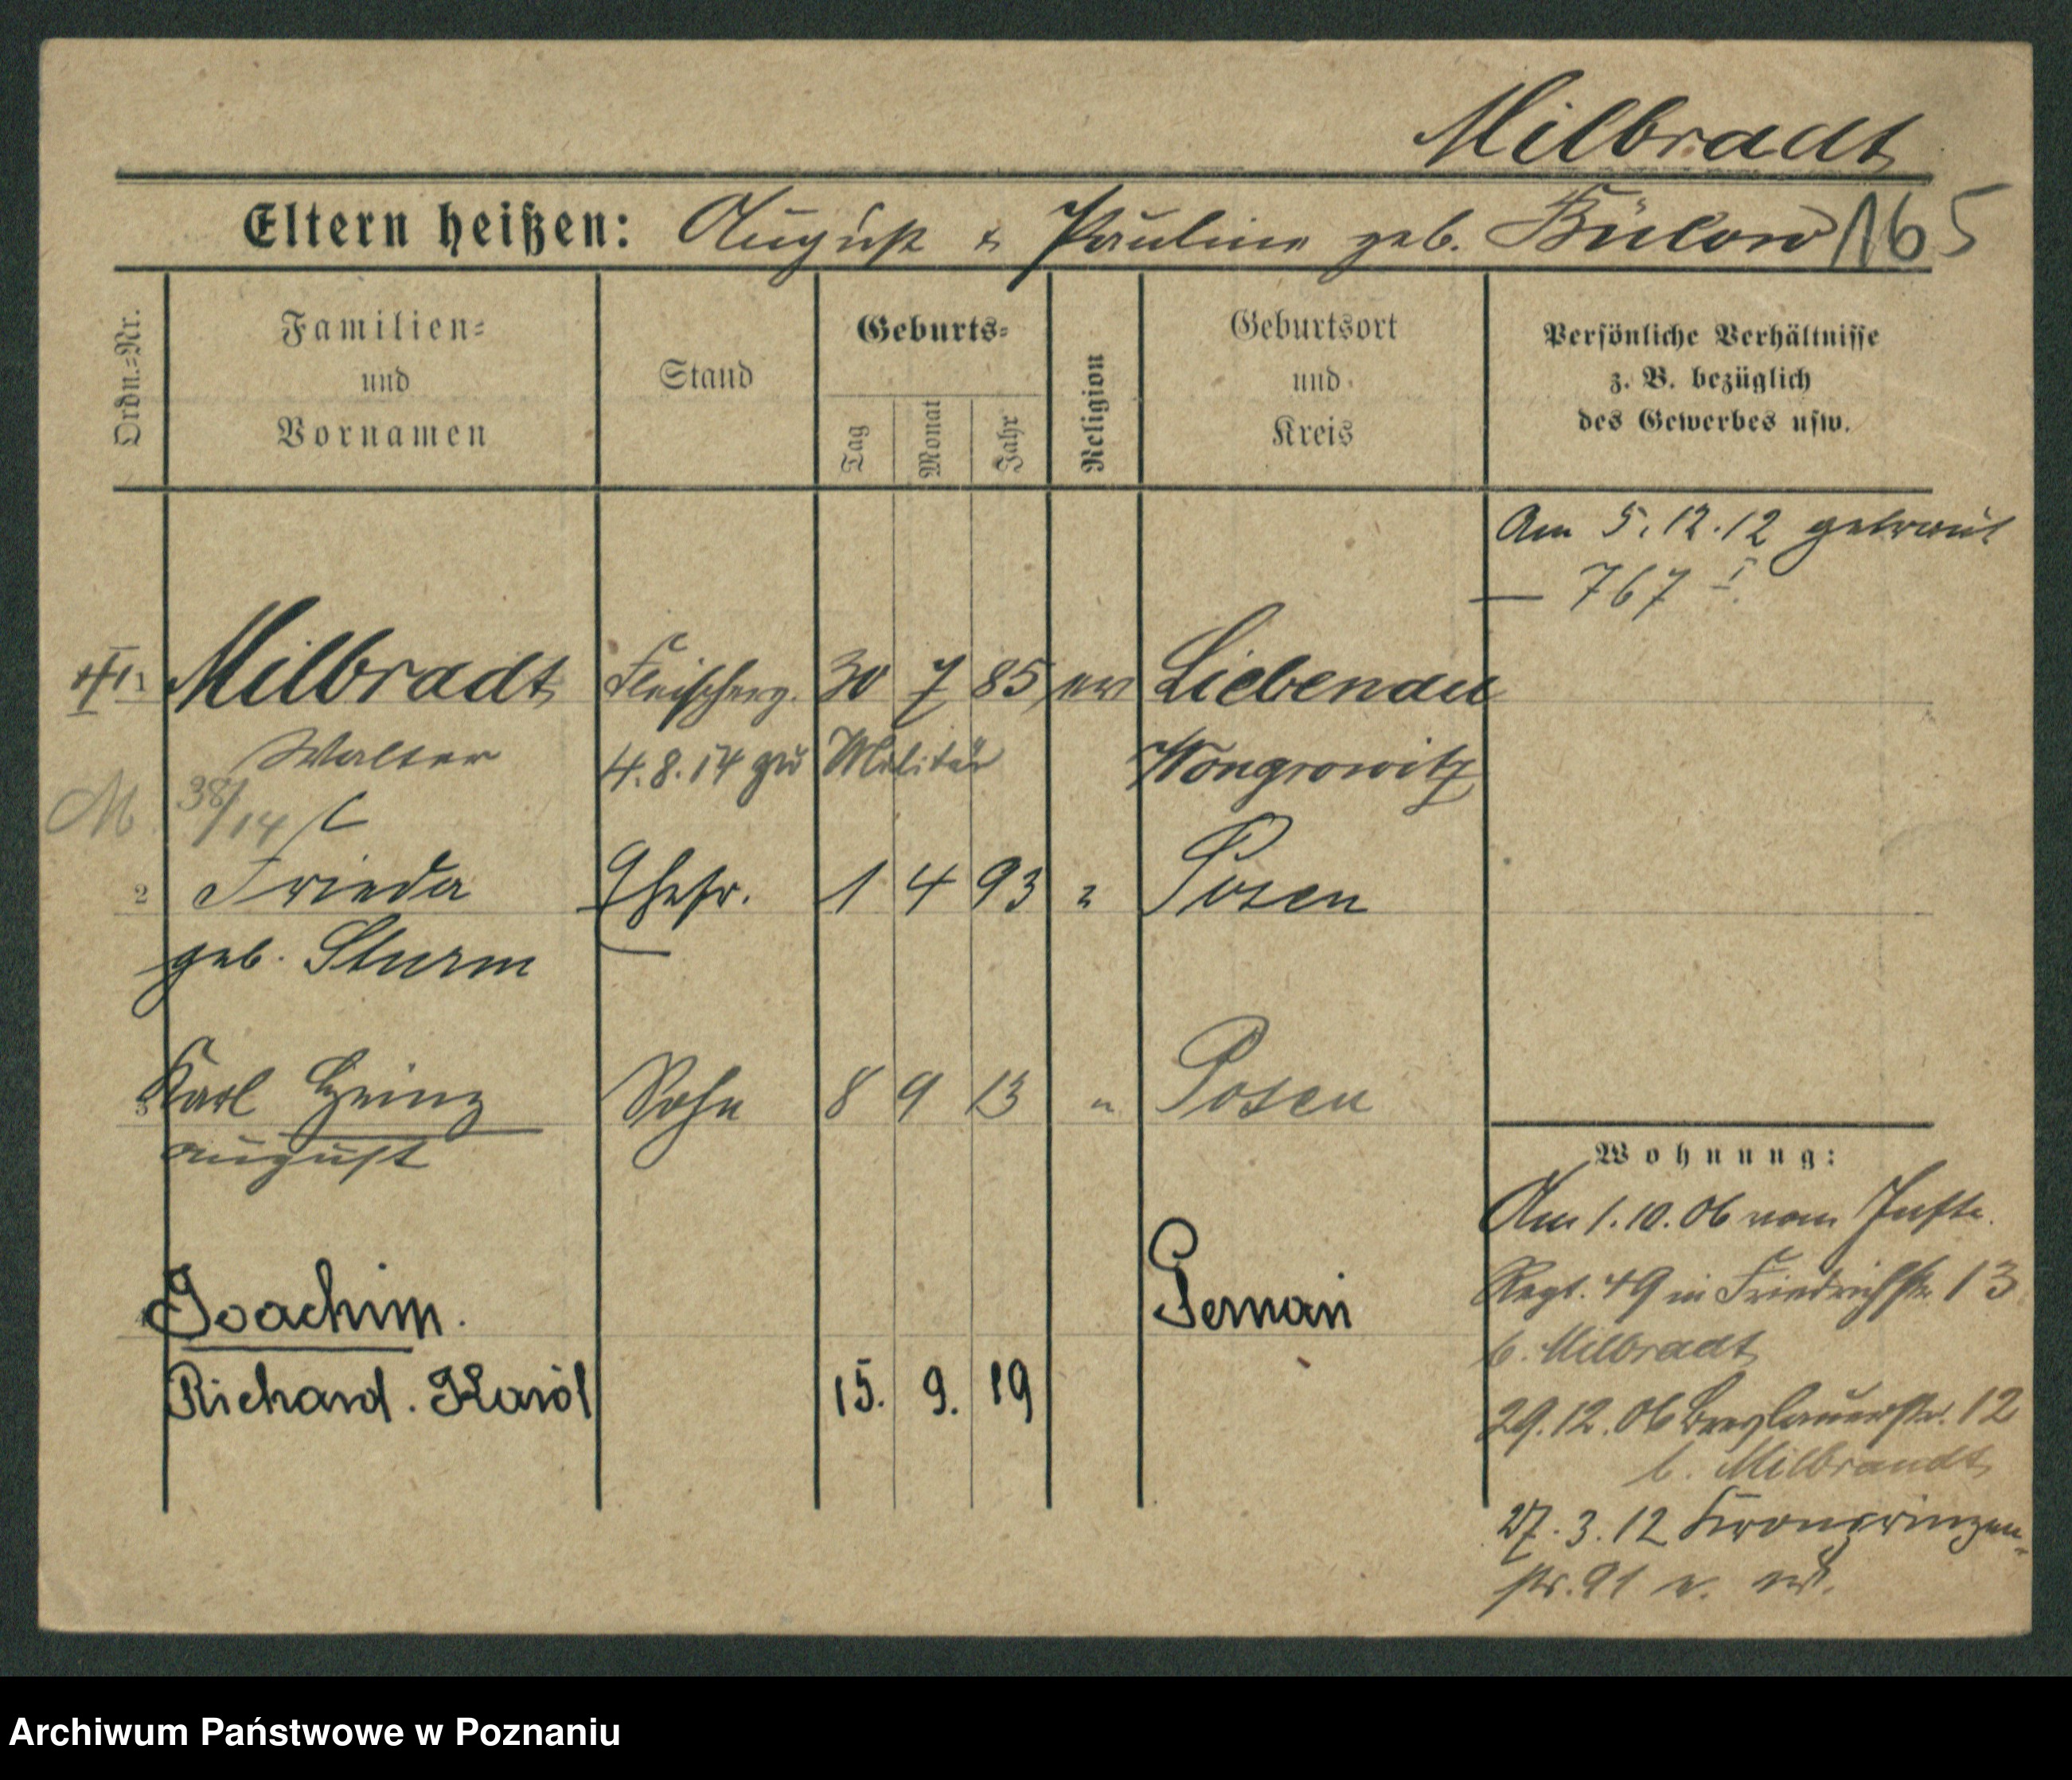 Milbradt
Eltern heißen: August & Pauline geb. Bülow 165
Ordn.=Nr.
Familien=
und
Vornamen
Stand
Geburts=
Tag
Monat
Jahr
Religion
Geburtsort
und
Kreis
Persönliche Verhältnisse
z. B. bezüglich
des Gewerbes usw.
Am 5.12.12 getraut
— 767 I.
1 Milbradt Fleischerg. 30 7 85 ev Liebenau
Walter 4.8.14 zu Militär Wongrowitz
M 38/14
2 Frieda Ehefr. 1 4 93 " Posen
geb. Sturm
3 Karl Heinz Sohn 8 9 13 " Posen
August
Joachim. Poznań
Richard. Karol 15. 9. 19
Wohnung:
Am 1.10.06 vom Inftr.
Regt. 49 in Friedrichstr. 13
b. Milbradt
29.12.06 Breslauerstr. 12
b. Milbrandt
27.3.12 Kronprinzen-
str. 91
Archiwum Państwowe w Poznaniu